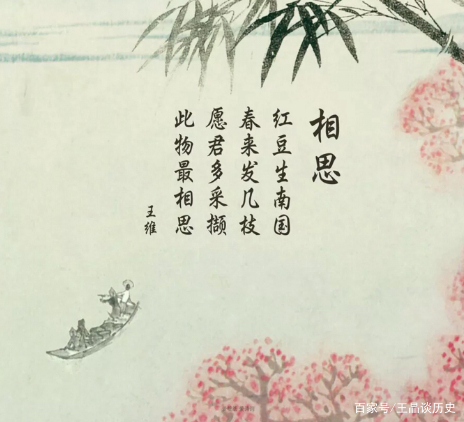 相思
红豆生南国
春来发几枝
愿君多采撷
此物最相思
王维
百家号/王晶谈历史